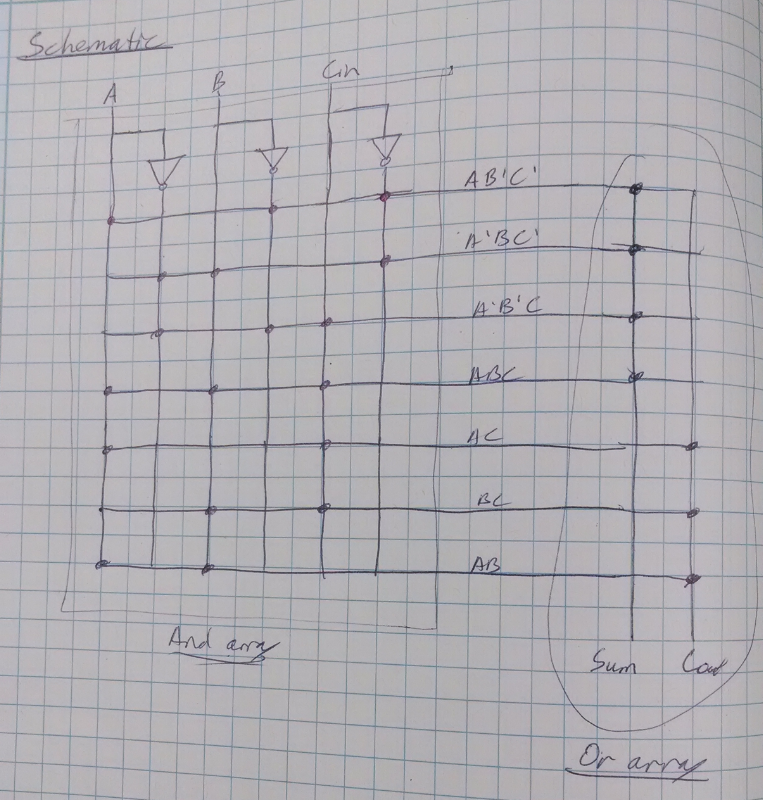 Schematic
A B Cin
AB'C'
A'BC'
A'B'C
ABC
AC
BC
AB
And array
Sum Cout
Or array